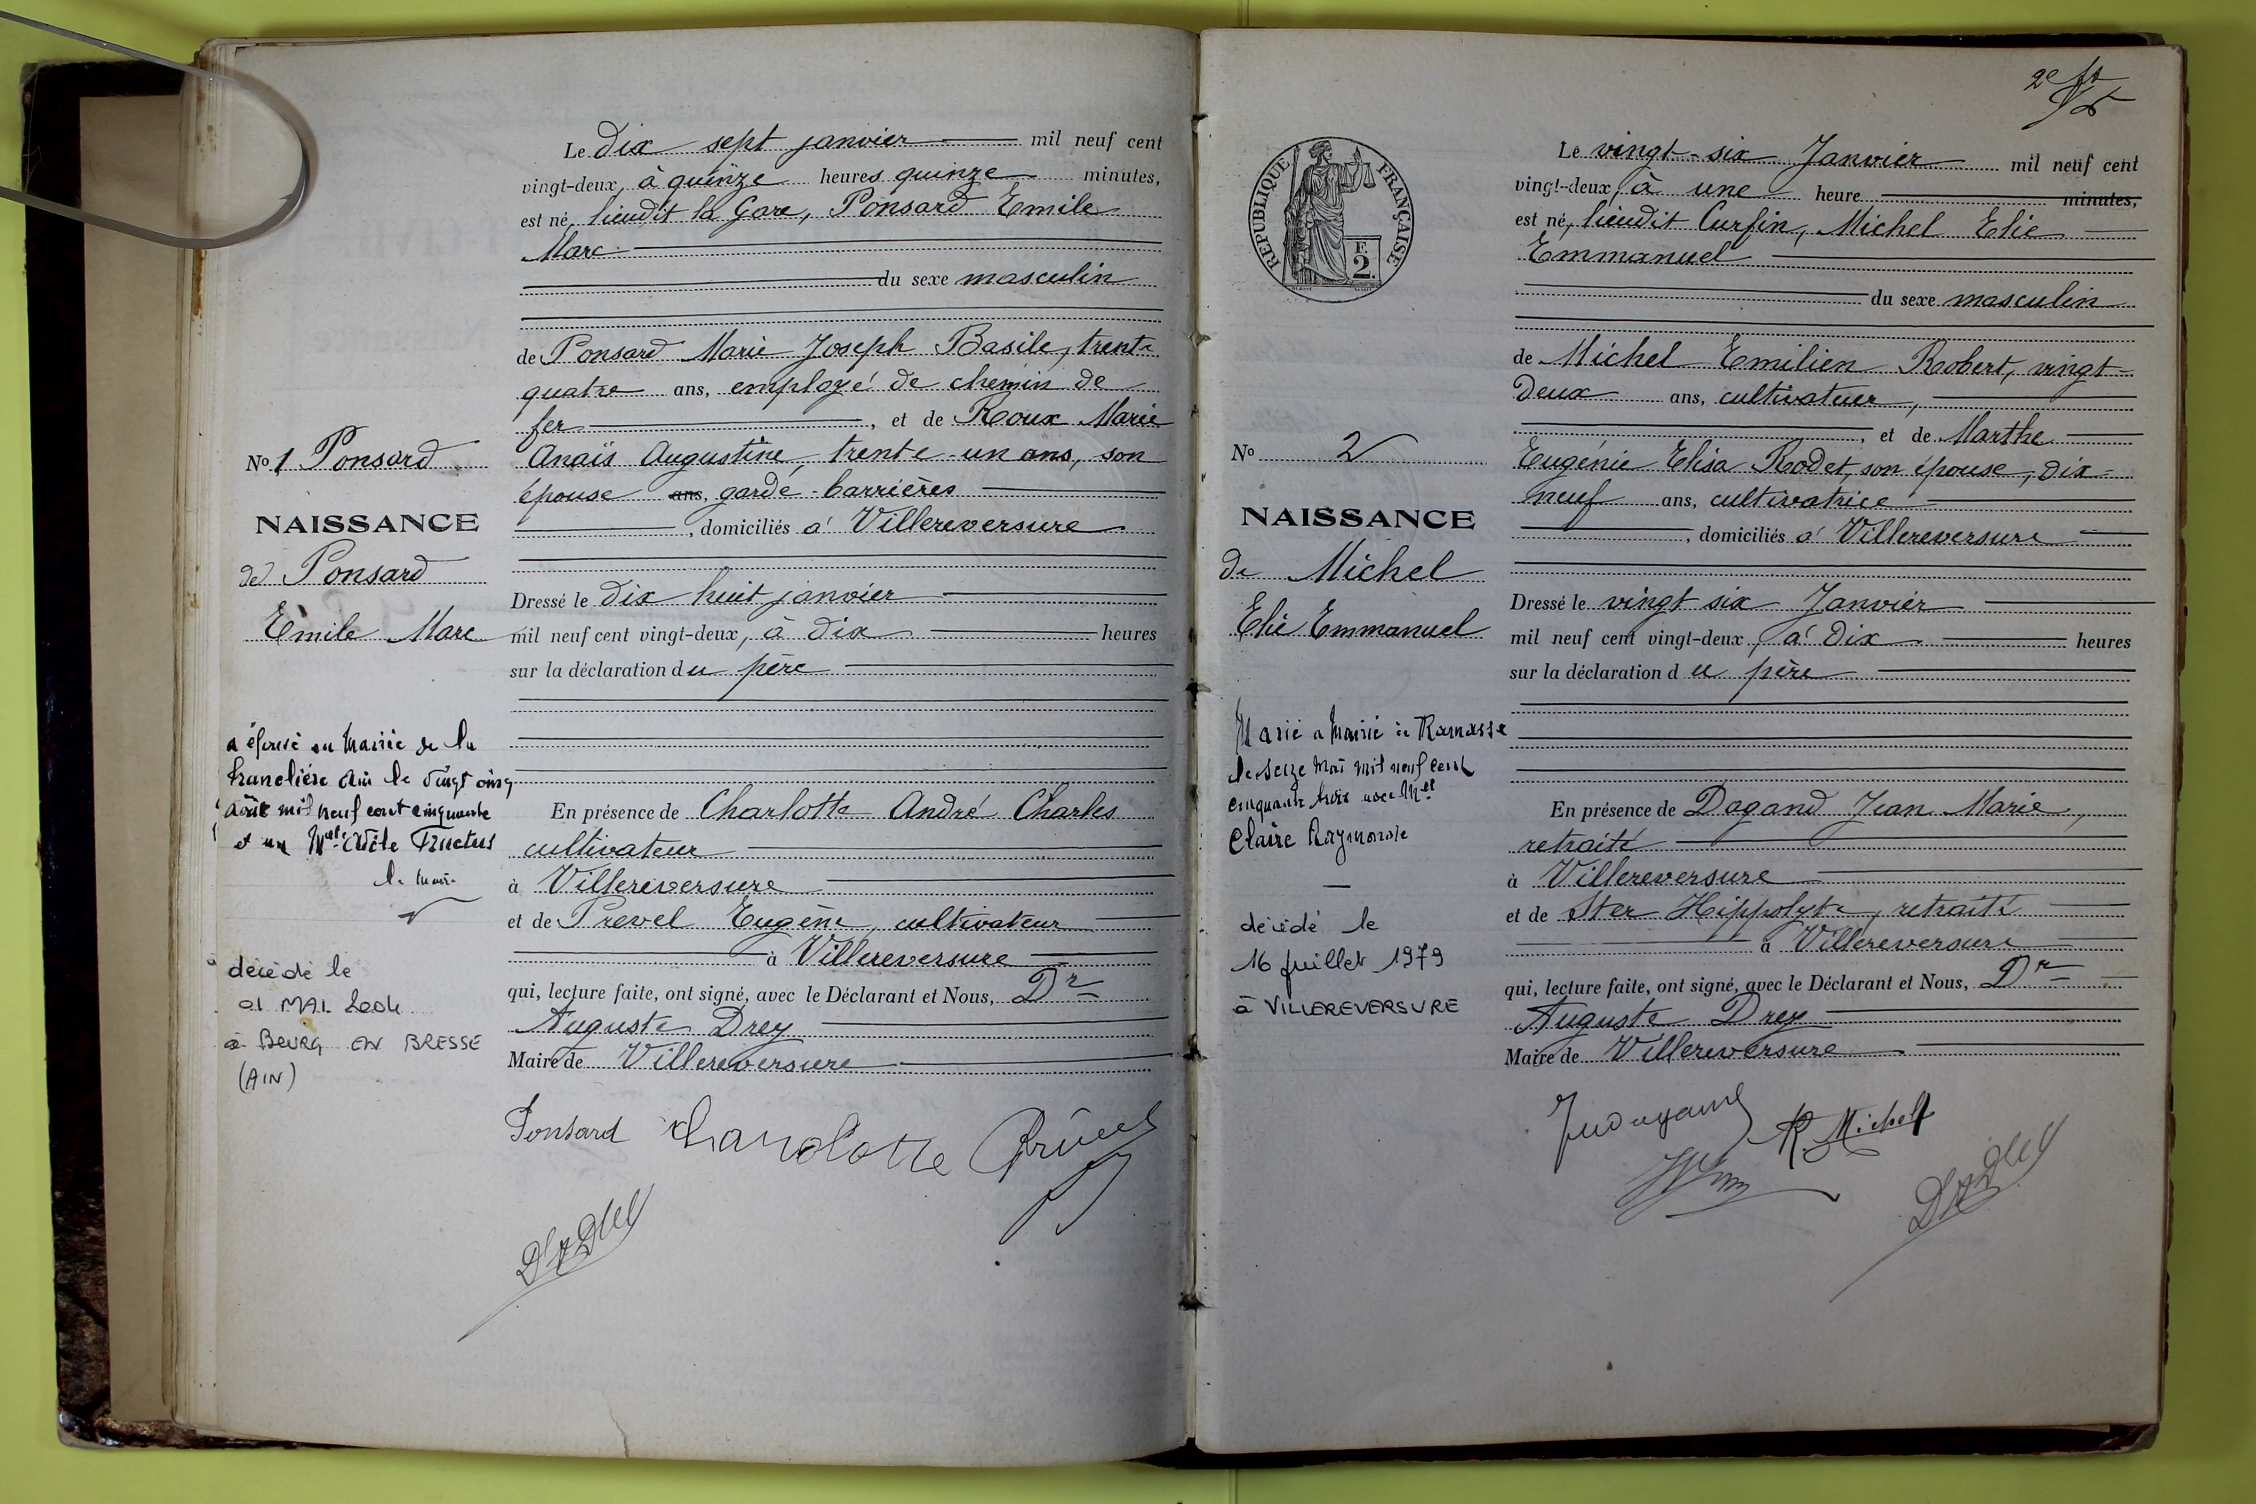 Le dix sept janvier mil neuf cent
vingt-deux, à quinze heures quinze minutes,
est né, lieudit la Gare, Ponsard Emile
Marc
du sexe masculin
de Ponsard Marie Joseph Basile, trente
quatre ans, employé de chemin de
fer, et de Roux Marie
Anaïs Augustine, trente-un ans, son
épouse ans, garde-barrières
, domiciliés à Villereversure
Dressé le dix huit janvier
mil neuf cent vingt-deux, à dix heures
sur la déclaration du père
En présence de Charlotte André Charles
cultivateur
à Villereversure
et de Prevel Eugène, cultivateur
à Villereversure
qui, lecture faite, ont signé, avec le Déclarant et Nous, Dr
Auguste Drey
Maire de Villereversure
Ponsard Charlotte
No 1 Ponsard
NAISSANCE
de Ponsard
Emile Marc
a épousé en Mairie de la
Tranclière Ain le vingt cinq
août mil neuf cent cinquante
et un Melle Fructus
le Maire
décédé le
21 MAI 2004
à BOURG EN BRESSE
(AIN)
2e
RÉPUBLIQUE FRANÇAISE
F.
2
Le vingt-six Janvier mil neuf cent
vingt-deux, à une heure minutes,
est né, lieudit Curfin, Michel Elie
Emmanuel
du sexe masculin
de Michel Emilien Robert, vingt
deux ans, cultivateur,
, et de Marthe
Eugénie Elisa Rodet, son épouse, dix-
neuf ans, cultivatrice
, domiciliés à Villereversure
Dressé le vingt six Janvier
mil neuf cent vingt-deux, à dix heures
sur la déclaration du père
En présence de Dagand Jean Marie,
retraité
à Villereversure
et de Ster Hippolyte, retraité
à Villereversure
qui, lecture faite, ont signé, avec le Déclarant et Nous, Dr
Auguste Drey
Maire de Villereversure
R. Michel
No 2
NAISSANCE
de Michel
Elie Emmanuel
Marié à Mairie de Ramasse
le seize Mai mil neuf cent
cinquante trois avec Mell
Claire Raymonde
décédé le
16 juillet 1979
à VILLEREVERSURE